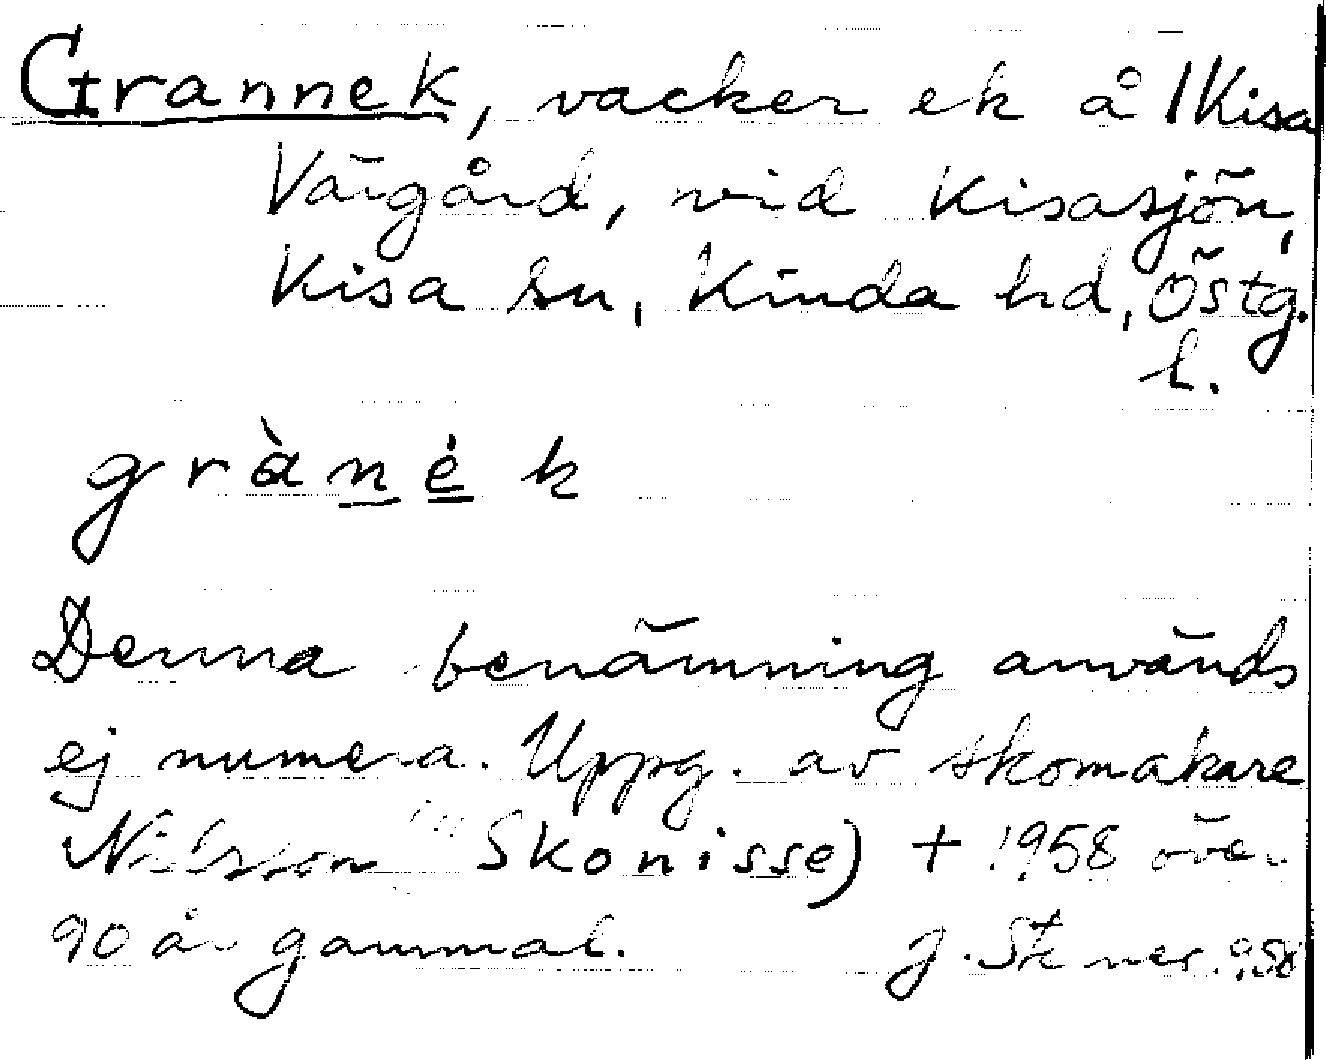 Grannek, vacker ek å 1 Kisa
Värgård, vid Kisasjön,
Kisa sn, Kinda hd, Östg.
l.
gràn̲ė̲k
Denna benämning används
ej numera. Uppg. av skomakare
Nilsson Skonisse) + 1958 över
90 år gammal. J. Stener.